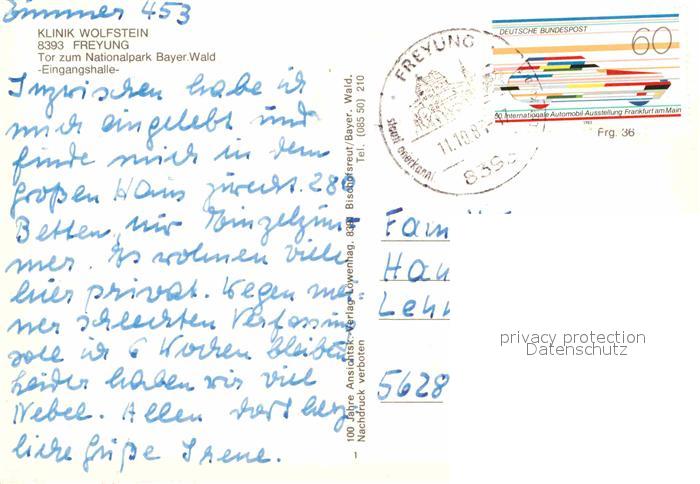 Zimmer 453
KLINIK WOLFSTEIN
8393 FREYUNG
Tor zum Nationalpark Bayer.Wald
-Eingangshalle-
Inzwischen habe ich
mich eingelebt und
finde mich in dem
großen Haus zurecht. 280
Betten, nur Einzelzim
mer. Es wohnen viele
hier privat. Wegen mei
ner schlechten Verfassung
soll ich 6 Wochen bleiben
Leider haben wir viel
Nebel. Allen dort herz
liche Grüße Irene.
100 Jahre Ansichtsk.-Verlag Löwenhag, 8391 Bischofsreut/Bayer. Wald,
Nachdruck verboten Tel. (085 50) 210
1
FREYUNG
staatl anerkannt
11.10.8
839
DEUTSCHE BUNDESPOST
60
50 Internationale Automobil-Ausstellung Frankfurt am Main
1983
Frg. 36
Fam
Hau
Lehr
5628
privacy protection
Datenschutz